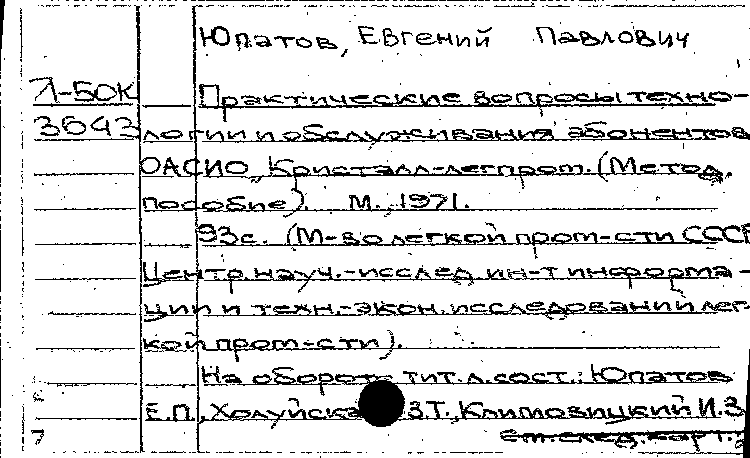 Юпатов, Евгений Павлович
Л-БОК Практические вопросы техно-
3643 логии и обслуживания абонентов
ОАСИО „Кристалл-легпром. (Метод.
пособие). М., 1971.
93с. (М-во легкой пром-сти СССР
Центр. науч.-исслед. ин-т информа-
ции и техн.-экон. исследований лег-
кой пром-сти).
На обороте тит. л. сост.: Юпатов
Е.П., З.Т., Климовицкий И.З
См. след. карт.
7